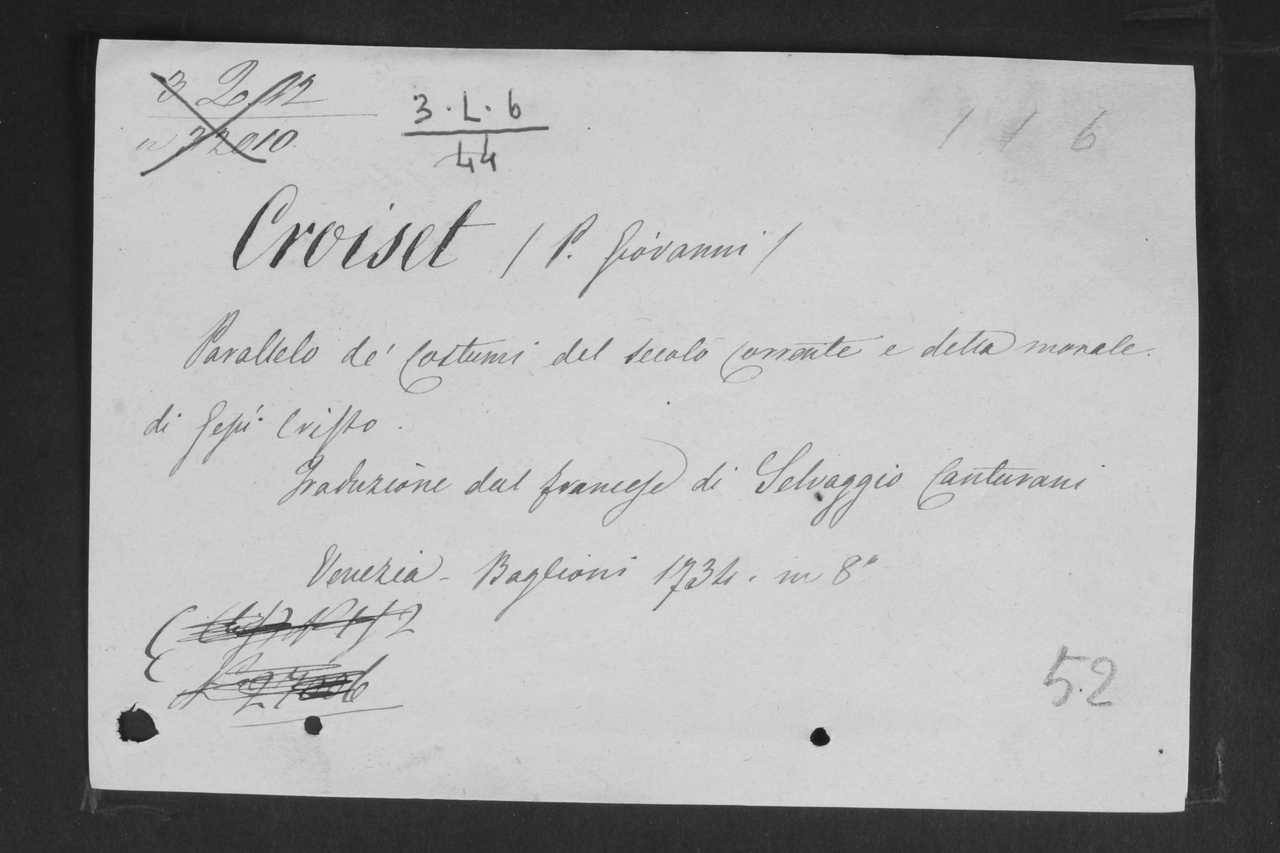 3 · L · 6
44
1 1 6
Croiset / P. Giovanni /
Parallelo de' Costumi del secolo corrente e della morale
di Gesù Cristo.
Traduzione dal francese di Selvaggio Canturani
Venezia - Baglioni 1734. in 8°
52